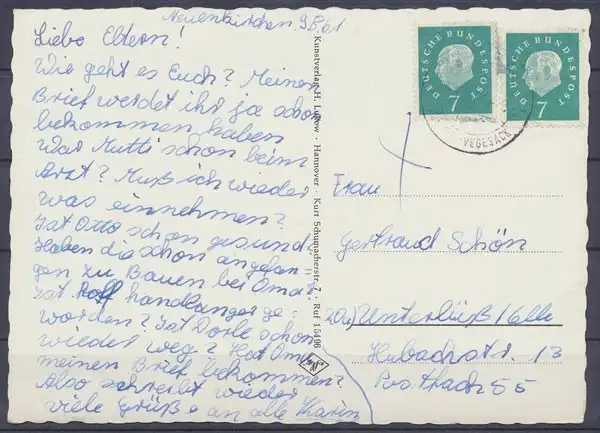 Neuenkirchen 9.8.61
Liebe Eltern!
Wie geht es Euch? Meinen
Brief werdet ihr ja schon
bekommen haben
War Mutti schon beim
Arzt? Muß ich wieder
was einnehmen?
Ist Otto schon gesund
Haben die schon angefan=
gen zu Bauen bei Oma?
Ist Rolf handlanger ge-
worden? Ist Dorle schon
wieder weg? Hat Oma
meinen Brief bekommen?
Also schreibt wieder
viele Grüße an alle Karin
Kunstverlag H. Lukow · Hannover · Kurt Schumacherstr. 7 · Ruf 15496
DEUTSCHE BUNDESPOST
7
DEUTSCHE BUNDESPOST
7
VEGESACK
Frau
Gertraud Schön
Unterlüß/Celle
Hubachstr. 13
Postfach 55